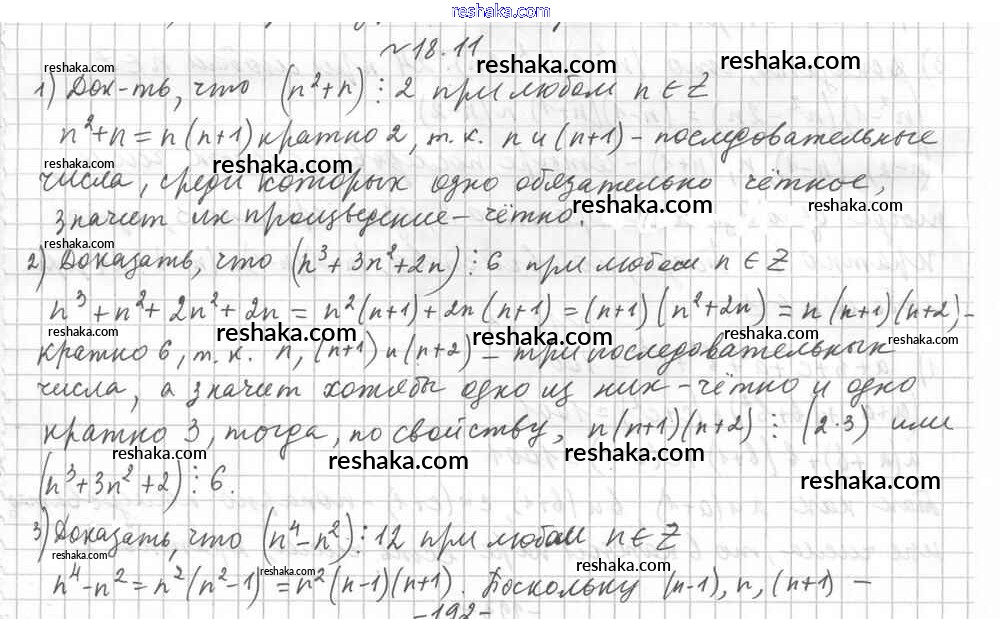 reshaka.com
~18.11
reshaka.com reshaka.com reshaka.com
1) Док-ть, что (n²+n)⋮2 при любом n∈Z
reshaka.com reshaka.com
n²+n = n(n+1) кратно 2, т.к. n и (n+1) – последовательные
reshaka.com reshaka.com
числа, среди которых одно обязательно чётное,
reshaka.com reshaka.com
значит их произведение – чётно.
reshaka.com
2) Доказать, что (n³+3n²+2n)⋮6 при любом n∈Z
n³+n²+2n²+2n = n²(n+1)+2n(n+1) = (n+1)(n²+2n) = n(n+1)(n+2) –
reshaka.com reshaka.com reshaka.com reshaka.com reshaka.com
кратно 6, т.к. n, (n+1) и (n+2) – три последовательных
числа, а значит хотябы одно из них – чётно и одно
кратно 3, тогда, по свойству, n(n+1)(n+2)⋮(2·3) или
reshaka.com reshaka.com reshaka.com reshaka.com
(n³+3n²+2)⋮6.
3) Доказать, что (n⁴-n²)⋮12 при любом n∈Z
reshaka.com reshaka.com reshaka.com
n⁴-n² = n²(n²-1) = n²(n-1)(n+1). Поскольку (n-1), n, (n+1) –
-192-